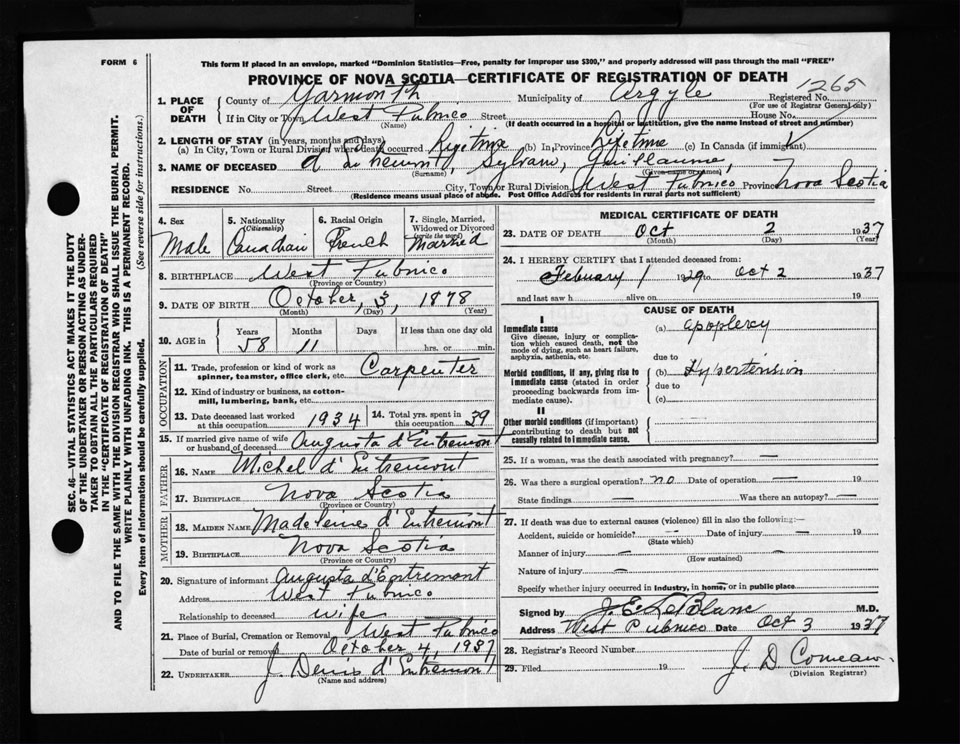 FORM 6
This form if placed in an envelope, marked "Dominion Statistics—Free, penalty for improper use $300," and properly addressed will pass through the mail "FREE"
PROVINCE OF NOVA SCOTIA—CERTIFICATE OF REGISTRATION OF DEATH
1265
1. PLACE OF DEATH County of Yarmouth Municipality of Argyle Registered No.
(For use of Registrar General only)
If in City or Town West Pubnico Street House No.
(Name) (If death occurred in a hospital or institution, give the name instead of street and number)
2. LENGTH OF STAY (in years, months and days)
(a) In City, Town or Rural Division where death occurred lifetime (b) In Province lifetime (c) In Canada (if immigrant)
3. NAME OF DECEASED Sylvain, Guillaume
(Surname, Given name or names)
RESIDENCE No. Street City, Town or Rural Division West Pubnico Province Nova Scotia
(Residence means usual place of abode. Post Office Address for residents in rural parts not sufficient)
4. Sex Male
5. Nationality (Citizenship) Canadian
6. Racial Origin French
7. Single, Married, Widowed or Divorced (write the word) Married
8. BIRTHPLACE West Pubnico
(Province or Country)
9. DATE OF BIRTH October, 3, 1878
(Month) (Day) (Year)
10. AGE in Years Months Days If less than one day old
58 11 hrs. or min.
OCCUPATION
11. Trade, profession or kind of work as spinner, teamster, office clerk, etc. Carpenter
12. Kind of industry or business, as cotton-mill, lumbering, bank, etc.
13. Date deceased last worked at this occupation 1934
14. Total yrs. spent in this occupation 39
15. If married give name of wife or husband of deceased Augusta d'Entremont
FATHER
16. NAME Michel d'Entremont
17. BIRTHPLACE Nova Scotia
(Province or Country)
MOTHER
18. MAIDEN NAME Madeleine d'Entremont
19. BIRTHPLACE Nova Scotia
(Province or Country)
20. Signature of informant Augusta d'Entremont
Address West Pubnico
Relationship to deceased wife
21. Place of Burial, Cremation or Removal West Pubnico
Date of burial or removal October 4, 1937
22. UNDERTAKER J. Denis d'Entremont
(Name and address)
MEDICAL CERTIFICATE OF DEATH
23. DATE OF DEATH Oct 2 1937
(Month) (Day) (Year)
24. I HEREBY CERTIFY that I attended deceased from:
February 1 1929 Oct 2 1937
and last saw h alive on 19
CAUSE OF DEATH
I
Immediate cause (a) apoplexy
Give disease, injury or complication which caused death, not the mode of dying, such as heart failure, asphyxia, asthenia, etc. due to
Morbid conditions, if any, giving rise to immediate cause (stated in order proceeding backwards from immediate cause). (b) Hypertension
due to
(c)
II
Other morbid conditions (if important) contributing to death but not causally related to immediate cause.
25. If a woman, was the death associated with pregnancy? —
26. Was there a surgical operation? no Date of operation —
State findings — Was there an autopsy? —
27. If death was due to external causes (violence) fill in also the following:—
Accident, suicide or homicide? — Date of injury — 19
(State which)
Manner of injury —
(How sustained)
Nature of injury —
Specify whether injury occurred in industry, in home, or in public place
Signed by J. E. LeBlanc M.D.
Address West Pubnico Date Oct 3 1937
28. Registrar's Record Number
29. Filed 19 J. D. Comeau
(Division Registrar)
SEC. 46—VITAL STATISTICS ACT MAKES IT THE DUTY
OF THE UNDERTAKER OR PERSON ACTING AS UNDER-
TAKER TO OBTAIN ALL THE PARTICULARS REQUIRED
IN THE "CERTIFICATE OF REGISTRATION OF DEATH"
AND TO FILE THE SAME WITH THE DIVISION REGISTRAR WHO SHALL ISSUE THE BURIAL PERMIT.
WRITE PLAINLY WITH UNFADING INK. THIS IS A PERMANENT RECORD.
Every item of information should be carefully supplied. (See reverse side for instructions.)